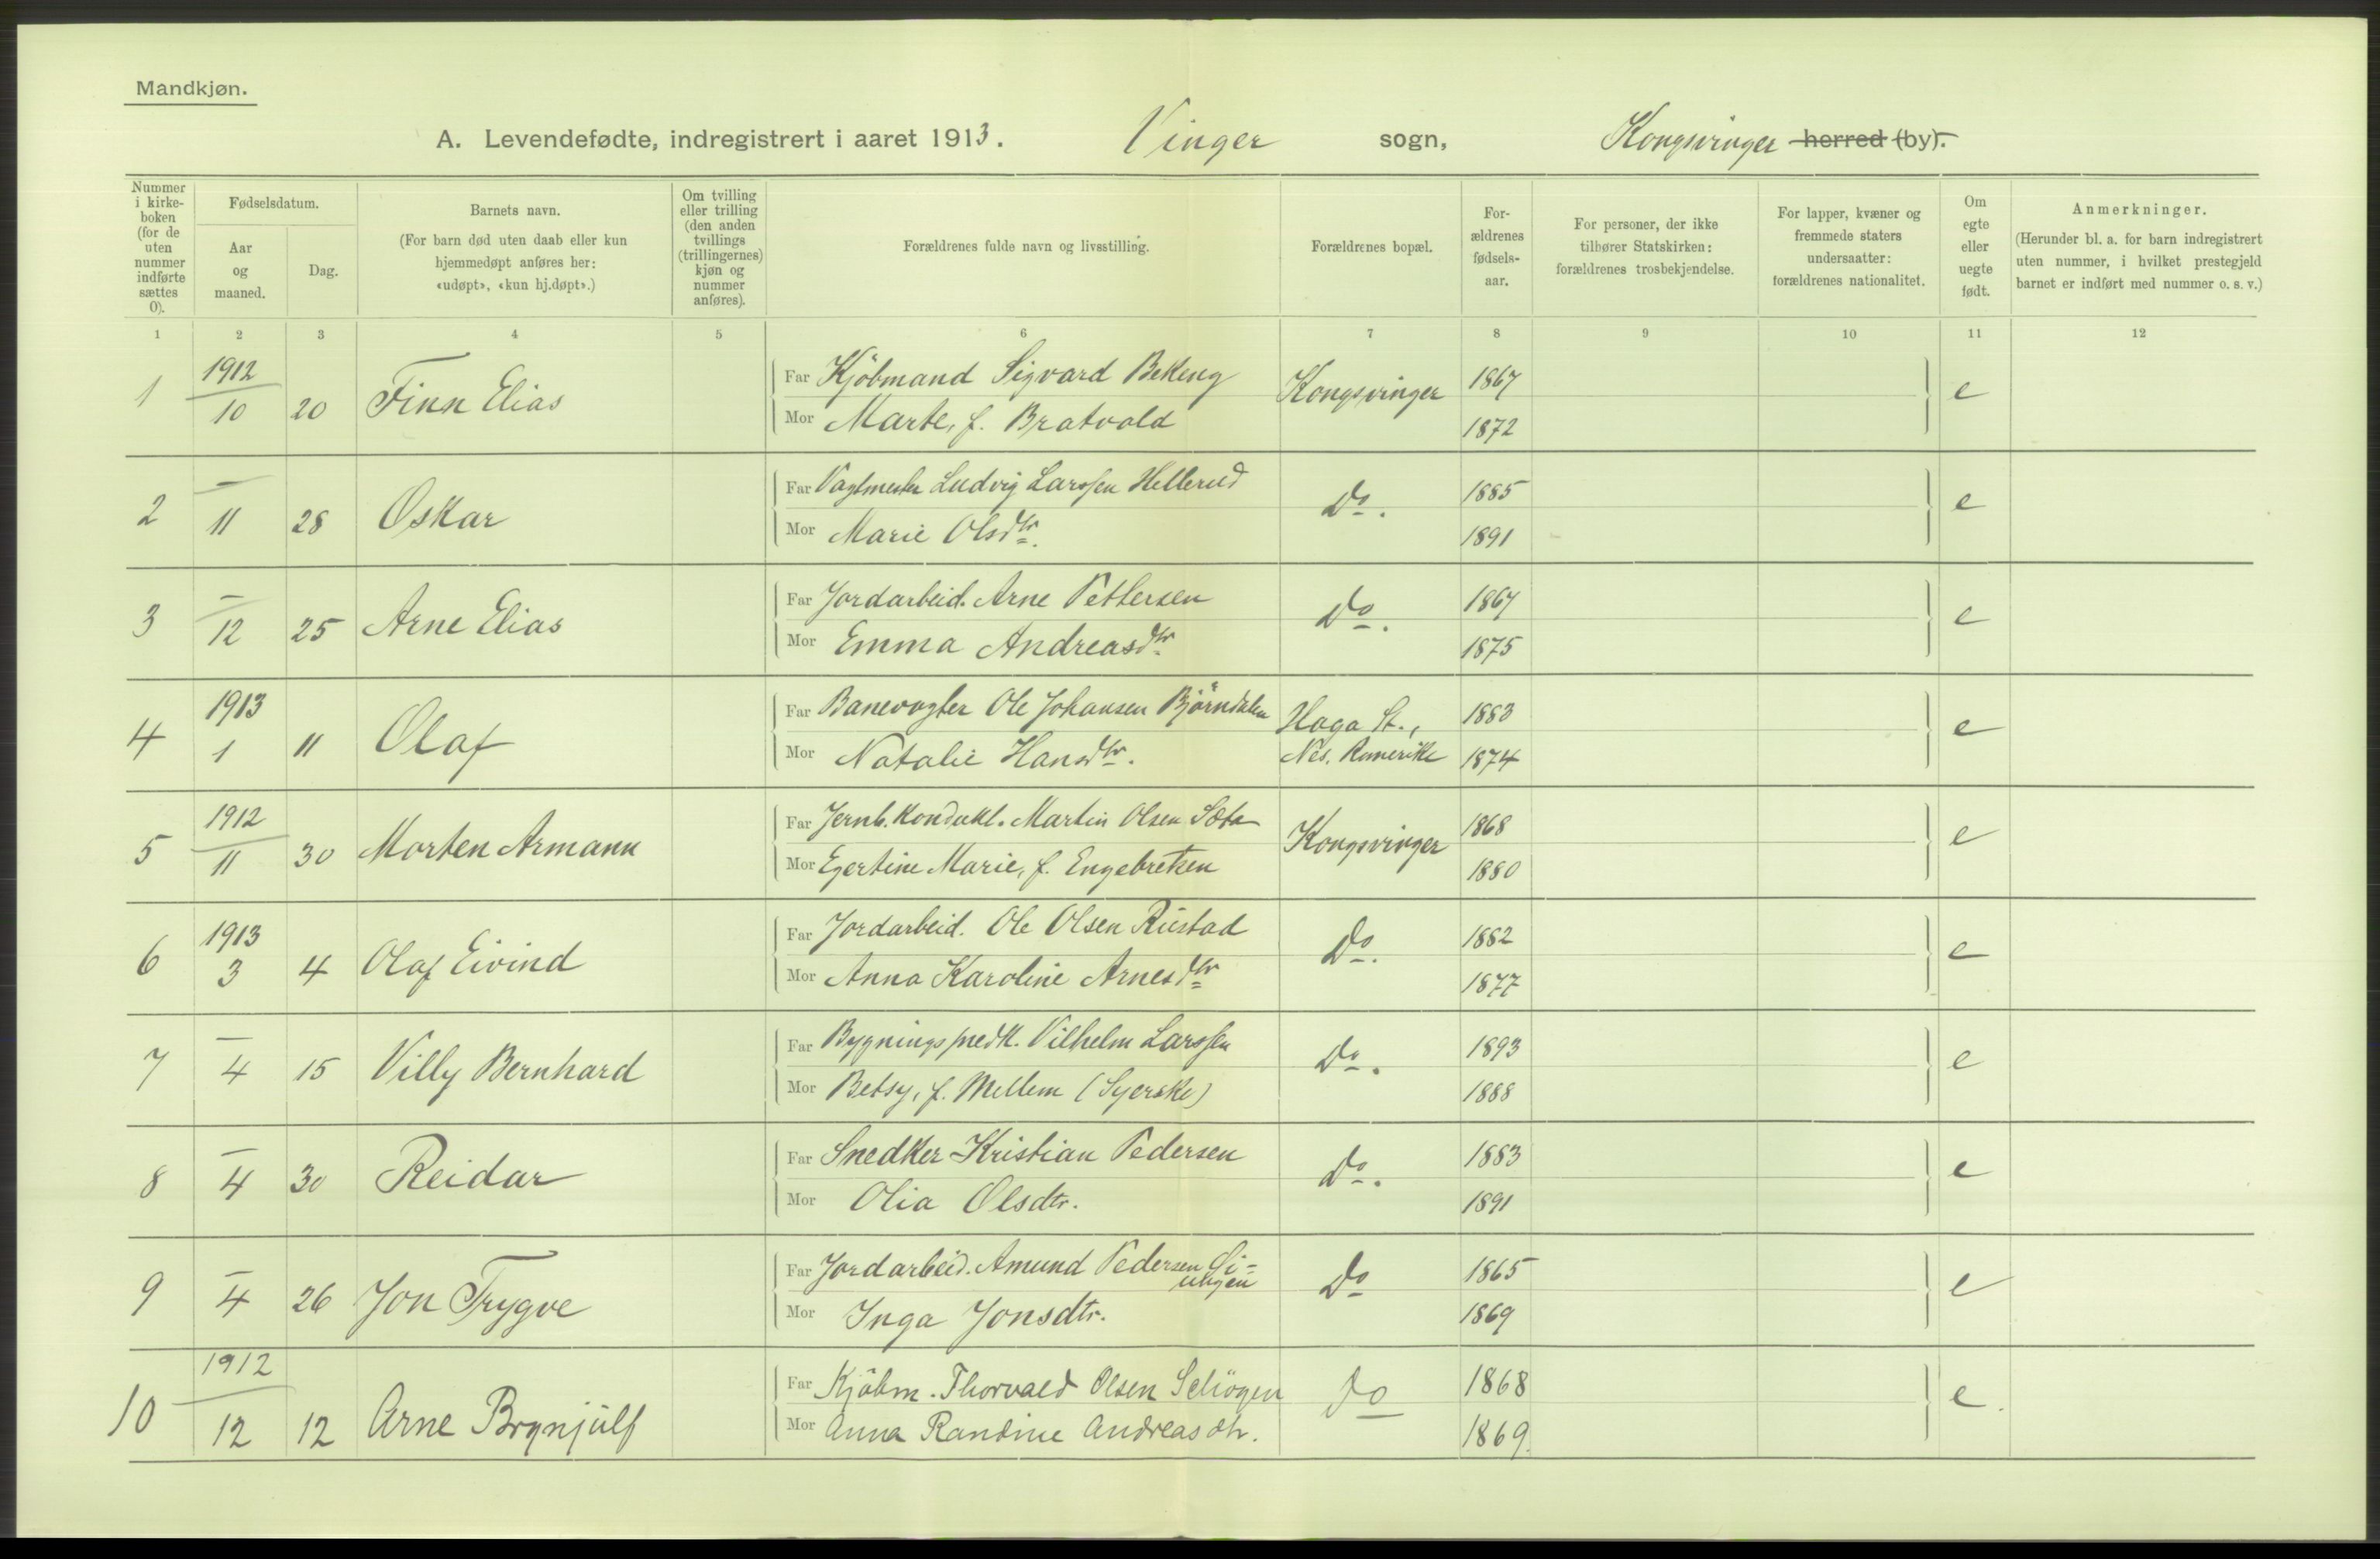 Mandkjøn.
A. Levendefødte, indregistrert i aaret 1913. Vinger sogn, Kongsvinger herred (by).
Nummer i kirke-boken (for de uten nummer indførte sættes 0).
Fødselsdatum.
Aar og maaned.
Dag.
Barnets navn.
(For barn død uten daab eller kun hjemmedøpt anføres her: «udøpt», «kun hj.døpt».)
Om tvilling eller trilling (den anden tvillings (trillingernes) kjøn og nummer anføres).
Forældrenes fulde navn og livsstilling.
Forældrenes bopæl.
For-ældrenes fødsels-aar.
For personer, der ikke tilhører Statskirken: forældrenes trosbekjendelse.
For lapper, kvæner og fremmede staters undersaatter: forældrenes nationalitet.
Om egte eller uegte født.
Anmerkninger.
(Herunder bl. a. for barn indregistrert uten nummer, i hvilket prestegjeld barnet er indført med nummer o. s. v.)
1 2 3 4 5 6 7 8 9 10 11 12
1 1912 10 20 Finn Elias Far Kjöbmand Sigvard Bekeng Kongsvinger 1867 e
Mor Marte, f. Bratvold 1872
2 — 11 28 Oskar Far Vagtmester Ludvig Larssen Hellerud Do. 1885 e
Mor Marie Olsdtr. 1891
3 — 12 25 Arne Elias Far Jordarbeid. Arne Pettersen Do. 1867 e
Mor Emma Andreasdtr. 1875
4 1913 1 11 Olaf Far Banevogter Ole Johansen Björndalen Haga St., 1883 e
Mor Natalie Hansdtr. Nes. Romerike 1874
5 1912 11 30 Morten Armann Far Jernb.kondukt. Martin Olsen Sæta Kongsvinger 1868 e
Mor Egertine Marie, f. Engebretsen 1880
6 1913 3 4 Olaf Eivind Far Jordarbeid. Ole Olsen Rustad Do. 1882 e
Mor Anna Karoline Arnesdtr 1877
7 — 4 15 Villy Bernhard Far Bygningssnedk. Vilhelm Larssen Do. 1893 e
Mor Betsy, f. Mellem (Syerske) 1888
8 — 4 30 Reidar Far Snedker Kristian Pedersen Do. 1883 e
Mor Olia Olsdtr. 1891
9 — 4 26 Jon Trygve Far Jordarbeid. Amund Pedersen Do 1865 e
Mor Inga Jonsdtr. 1869
10 1912 12 12 Arne Brynjulf Far Kjöbm. Thorvald Olsen Schögen do 1868 e.
Mor Anna Randine Andreasdtr. 1869.